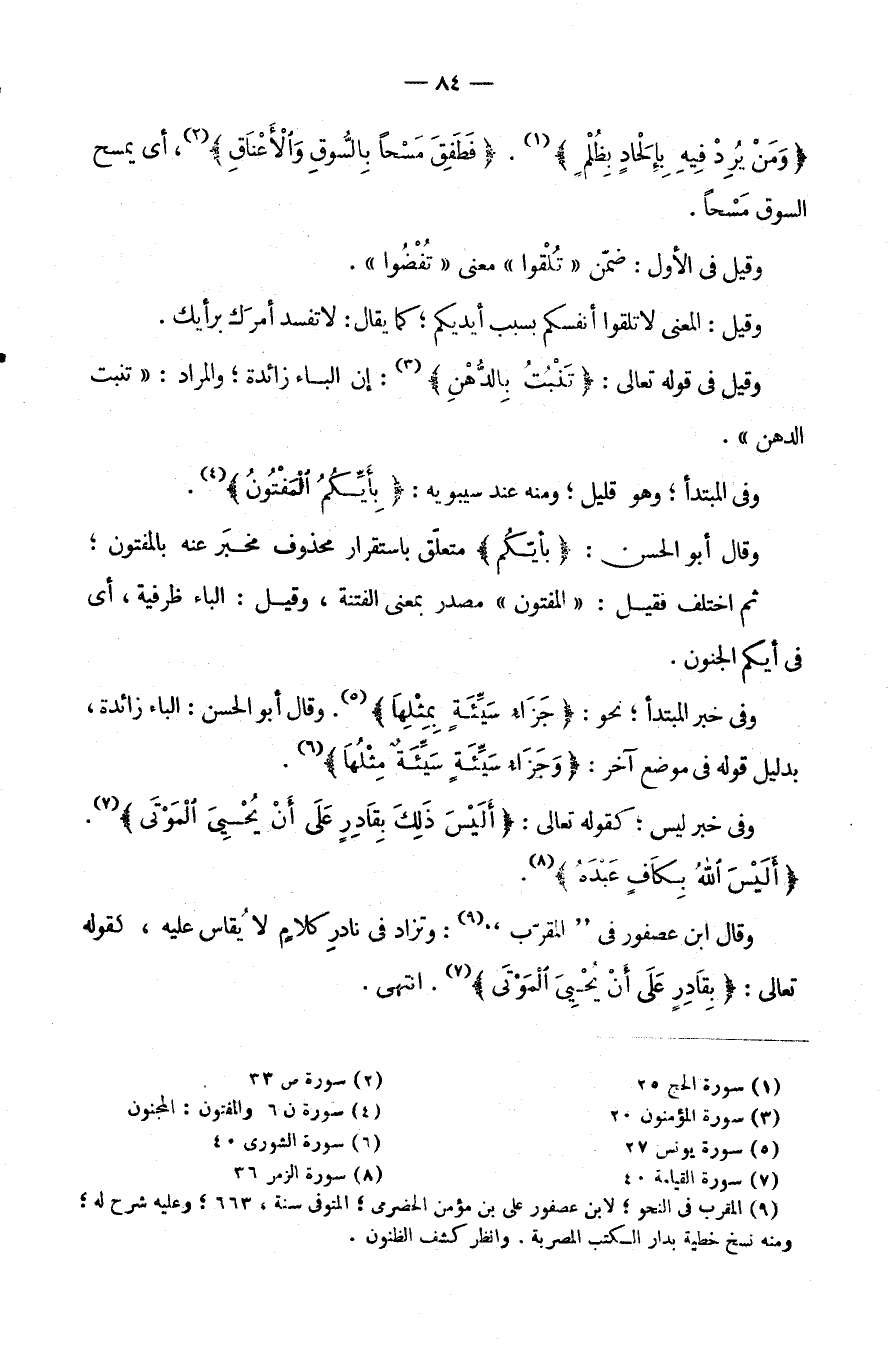 — ٨٤ —
﴿ وَمَنْ يُرِدْ فِيهِ بِإِلْحَادٍ بِظُلْمٍ ﴾(١) . ﴿ فَطَفِقَ مَسْحاً بِالسُّوقِ وَالْأَعْنَاقِ ﴾(٢)، أى يمسح
السوق مَسْحاً .
وقيل فى الأول : ضمّن « تُلْقوا » معنى « تُفْضُوا » .
وقيل : المعنى لاتلقوا أنفسكم بسبب أيديكم ؛ كما يقال : لاتفسد أمرَك برأيك .
وقيل فى قوله تعالى : ﴿ تَنْبُتُ بِالدُّهْنِ ﴾(٣) : إن البـاء زائدة ؛ والمراد : « تنبت
الدهن » .
وفى المبتدأ ؛ وهو قليل ؛ ومنه عند سيبويه : ﴿ بِأَيِّـكُمُ الْمَفْتُونُ ﴾(٤) .
وقال أبو الحسن : ﴿ بأيّـكُم ﴾ متعلّق باستقرار محذوف مخـبَر عنه بالمفتون ؛
ثم اختلف فقيـل : « المفتون » مصدر بمعنى الفتنة ، وقيـل : الباء ظرفية ، أى
فى أيكم الجنون .
وفى خبر المبتدأ ؛ نحو : ﴿ جَزَاءُ سَيِّئَـةٍ بِمِثْلِهَا ﴾(٥). وقال أبو الحسن : الباء زائدة ،
بدليل قوله فى موضع آخر : ﴿ وَجَزَاءُ سَيِّئَـةٍ سَيِّئَـةٌ مِثْلُهَا ﴾(٦) .
وفى خبر ليس ؛ كقوله تعالى : ﴿ أَلَيْسَ ذَلِكَ بِقَادِرٍ عَلَى أَنْ يُحْـيِيَ الْمَوْتَى ﴾(٧).
﴿ أَلَيْسَ اللهُ بِـكَافٍ عَبْدَهُ ﴾(٨).
وقال ابن عصفور فى ”المقرّب“(٩) : وتزاد فى نادرِ كلامٍ لا يُقاس عليه ، كقوله
تعالى : ﴿ بِقَادِرٍ عَلَى أَنْ يُحْـيِيَ الْمَوْتَى ﴾(٧) . انتهى .
(١) سورة الحج ٢٥ (٢) سورة ص ٣٣
(٣) سورة المؤمنون ٢٠ (٤) سورة ن ٦ والمفتون : المجنون
(٥) سورة يونس ٢٧ (٦) سورة الشورى ٤٠
(٧) سورة القيامة ٤٠ (٨) سورة الزمر ٣٦
(٩) المقرب فى النحو ؛ لابن عصفور على بن مؤمن الحضرمى ؛ المتوفى سنة ، ٦٦٣ ؛ وعليه شرح له ؛
ومنه نسخ خطية بدار الـكتب المصرية . وانظر كشف الظنون .